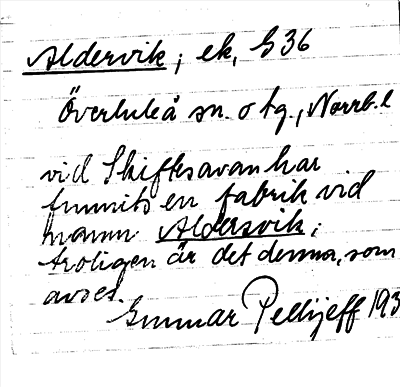 Aldervik; ek, G 36
Överluleå sn. o tg., Norrb. l
vid Skiftesavan har
funnits en fabrik vid
namn Aldersvik;
troligen är det denna, som
avses.
Gunnar Pellijeff 193